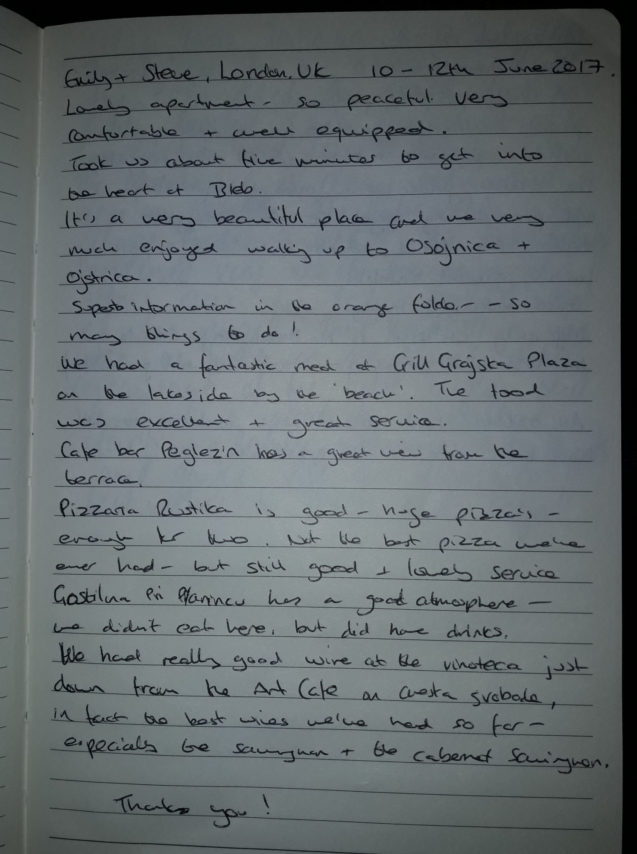 Emily + Steve, London, UK 10 - 12th June 2017.
Lovely apartment - so peaceful. Very
comfortable + well equipped.
Took us about five minutes to get into
the heart of Bled.
It's a very beautiful place and we very
much enjoyed walking up to Osojnica +
Ojstrica.
Superb information in the orange folder - so
many things to do!
We had a fantastic meal at Grill Grajska Plaza
on the lakeside by the 'beach'. The food
was excellent + great service.
Cafe bar Peglez'n has a great view from the
terrace.
Pizzaria Rustika is good - huge pizza's -
enough for two. Not the best pizza we've
ever had - but still good + lovely service
Gostilna Pri Planincu has a good atmosphere -
we didn't eat here, but did have drinks.
We had really good wine at the vinoteca just
down from the Art Cafe on cesta svobode,
in fact the best wines we've had so far -
especially the sauvignon + the cabernet sauvignon.
Thank you!